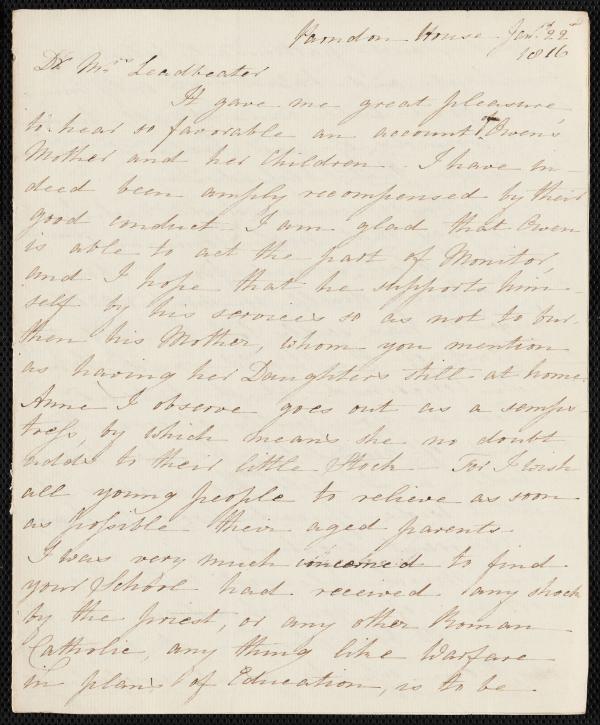 Varndon House Jan.y 22d
1816
Dr Mrs Leadbeater
It gave me great pleasure
to hear so favorable an account of Owen's
Mother and her Children. I have in-
deed been amply recompensed by their
good conduct. I am glad that Owen
is able to act the part of Monitor,
and I hope that he supports him-
self by his services so as not to bur-
then his Mother, whom you mention
as having her Daughters still at home.
Anne I observe goes out as a semps-
tress, by which means she no doubt
adds to their little Stock - For I wish
all young people to relieve as soon
as possible their aged parents
I was very much to find
your School had received any shock
by the priest, or any other Roman
Catholic, any thing like Warfare
in plans of Education, is to be